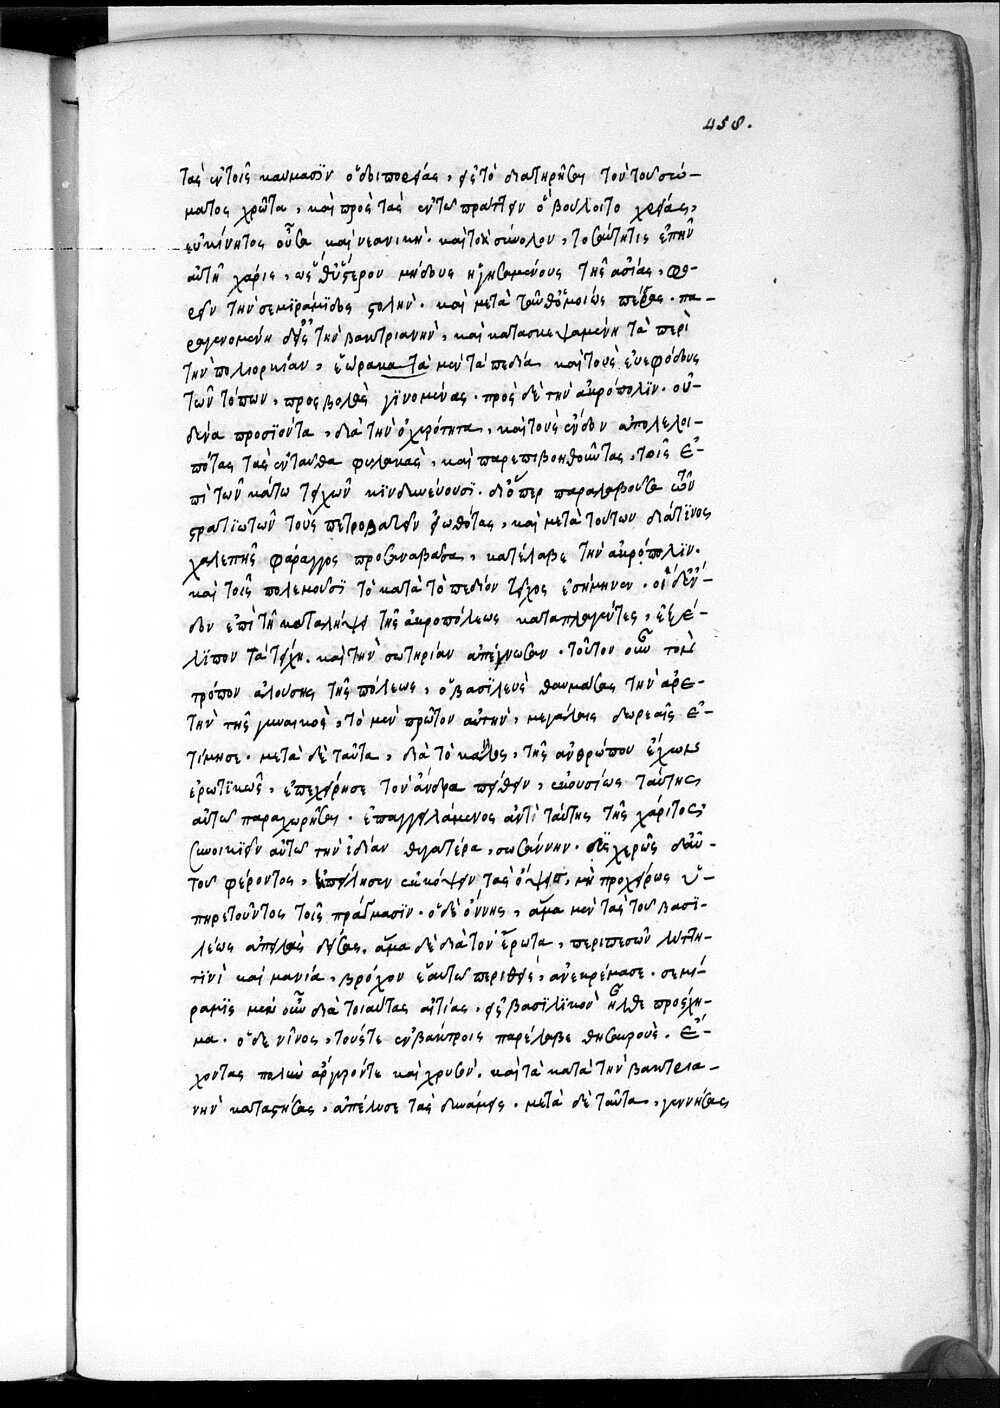 458.
τὰς ἐν τοῖς καύμασϊν ὁδοιπορίας, εἰς τὸ διατηρῆσαι τὸν τοῦ σώ-
ματος χρῶτα, καὶ πρὸς τὰς ἐν τῶ πράττειν ὃ βούλοιτο χρείας,
εὐκίνητος οὖσα καὶ νεανική· καὶ τοσύνολον, τοσαύτη τὶς ἐπῆν
αὐτῆ χάρις, ὡς θ' ὕστερον μήδους ἡγησαμένους τῆς ἀσίας, φο-
ρεῖν τὴν σεμϊράμϊδος στολήν· καὶ μετὰ ταῦθ' ὁμοίως πέρσας· πα-
ραγενομένη δ' εἰς τὴν βακτριανὴν, καὶ κατασκεψαμένη τὰ περὶ
τὴν πολιορκίαν, ἑώρακα τὰ μὲν τὰ πεδία καὶ τοὺς εὐεφόδους
τῶν τόπων, προσβολὰς γϊνομένας· πρὸς δὲ τὴν ἀκρόπολϊν· οὐ-
δένα προσϊόντα, διὰ τὴν ὀχυρότητα, καὶ τοὺς ἔνδον ἀπολελοι-
πότας τὰς ἐνταῦθα φυλακὰς, καὶ παρεπιβοηθοῦντας, τοῖς ἐ-
πὶ τῶν κάτω τειχῶν κϊνδυνεύουσϊ· διόπερ παραλαβοῦσα τῶν
στρατϊωτῶν τοὺς πετροβατεῖν εἰωθότας, καὶ μετὰ τούτων διά τϊνος
χαλεπῆς φάραγγος προσαναβᾶσα, κατέλαβε τὴν ἀκρόπολϊν·
καὶ τοῖς πολεμοῦσϊ τὸ κατὰ τὸ πεδίον τεῖχος ἐσήμηνεν· οἱ δ' ἔν-
δον ἐπὶ τῆ καταλήψει τῆς ἀκροπόλεως καταπλαγέντες, ἐξέ-
λϊπον τὰ τείχη· καὶ τὴν σωτηρίαν ἀπέγνωσαν· τοῦτον οὖν τὸν
τρόπον ἁλούσης τῆς πόλεως, ὁ βασϊλεὺς θαυμάσας τὴν ἀρε-
τὴν τῆς γυναικὸς, τὸ μὲν πρῶτον αὐτὴν, μεγάλαις δωρεαῖς ἐ-
τίμησε· μετὰ δὲ ταῦτα, διὰ τὸ κάλλος, τῆς ἀνθρώπου ἔχων
ἐρωτϊκῶς, ἐπεχείρησε τὸν ἄνδρα πείθειν, ἑκουσίως ταύτης
αὐτῶ παραχωρῆσαι· ἐπαγγειλάμενος ἀντὶ ταύτης τῆς χάριτος
συνοικιεῖν αὐτῶ τὴν ἰδίαν θυγατέρα, σωσάννην· δυσχερῶς δ' αὐ-
τοῦ φέροντος, ἠπείλησεν ἐκκόψειν τὰς ὄψεις, μὴ προχείρως ὑ-
πηρετοῦντος τοῖς πράγμασϊν· ὁ δὲ ὄννης, ἅμα μὲν τὰς τοῦ βασϊ-
λέως ἀπειλὰς δείσας, ἅμα δὲ διὰ τὸν ἔρωτα, περιπεσὼν λύττη
τϊνὶ καὶ μανία, βρόχον ἑαυτῶ περιθεὶς, ἀνεκρέμασε· σεμί-
ραμϊς μὲν οὖν διὰ τοιαύτας αἰτίας, εἰς βασϊλϊκὸν ἦλθε πρόσχη-
μα· ὁ δὲ νίνος, τούς τε ἐν βάκτροις παρέλαβε θησαυρούς· ἔ-
χοντας πολὺν ἄργυρόν τε καὶ χρυσὸν· καὶ τὰ κατὰ τὴν βακτρια-
νὴν καταστήσας, ἀπέλυσε τὰς δυνάμεις· μετὰ δὲ ταῦτα, γεννήσας